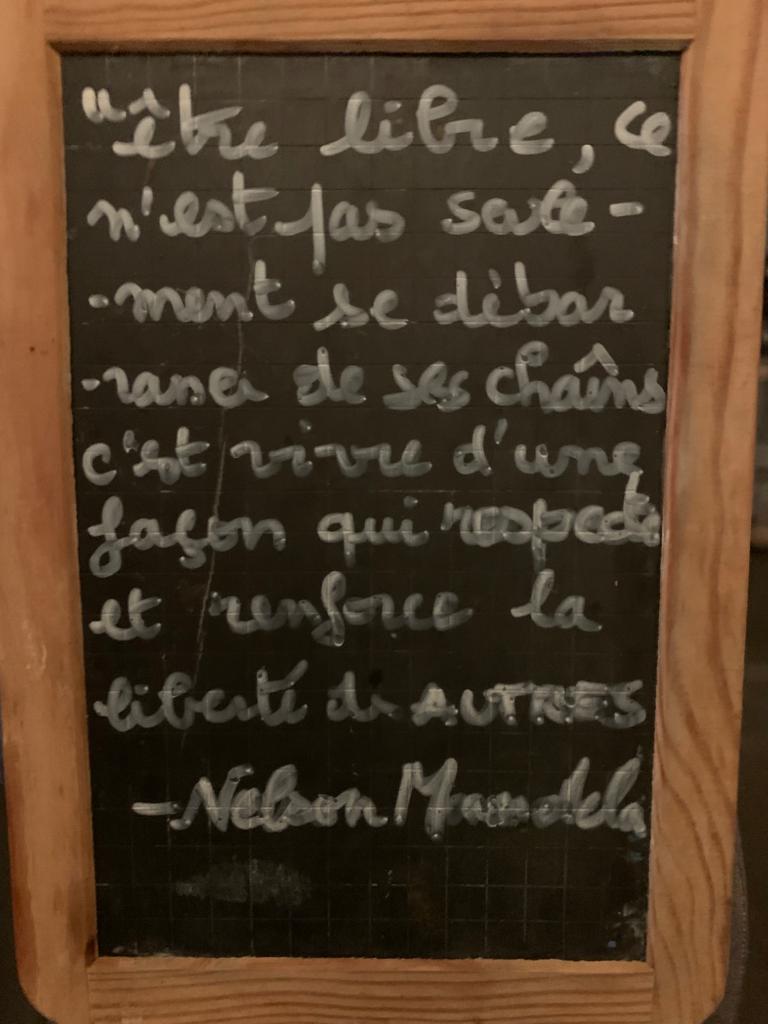 "être libre, ce
n'est pas seule-
-ment se débar
-rasser de ses chaîns
c'est vivre d'une
façon qui respecte
et renforce la
liberté des AUTRES
-Nelson Mandela